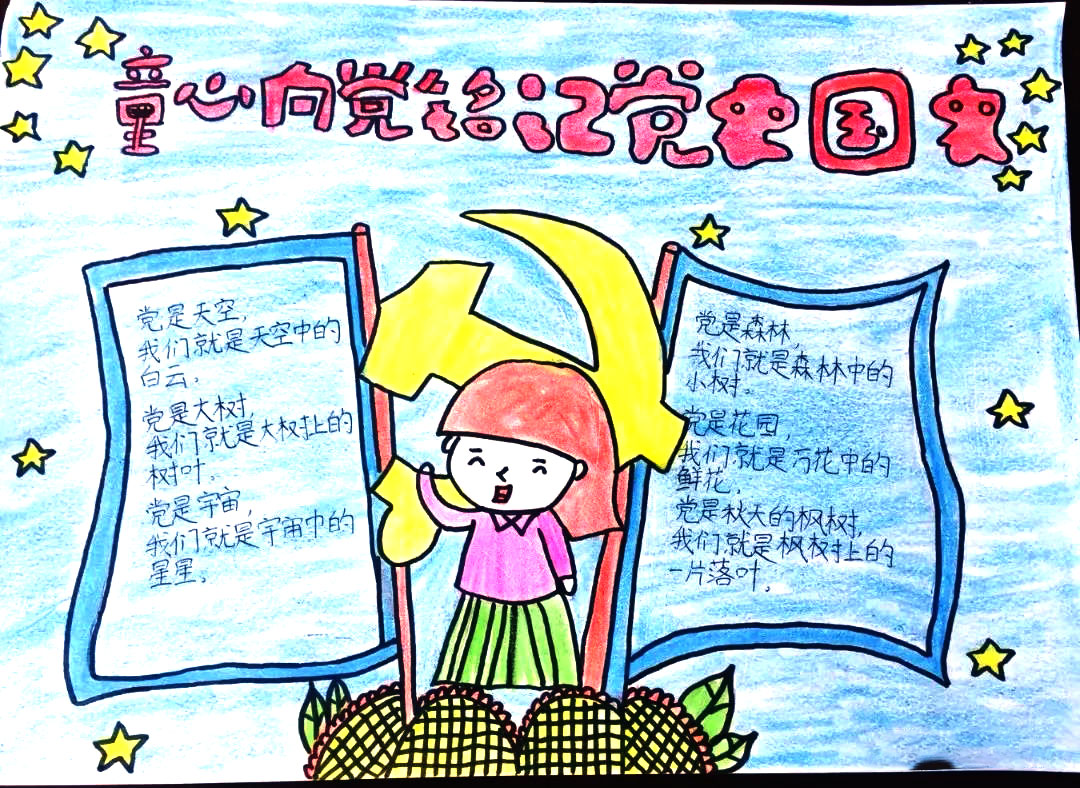 童心向党铭记党史国史
党是天空，
我们就是天空中的
白云。
党是大树，
我们就是大树上的
树叶。
党是宇宙，
我们就是宇宙中的
星星。
党是森林，
我们就是森林中的
小树。
党是花园，
我们就是万花中的
鲜花，
党是秋天的枫树，
我们就是枫树上的
一片落叶。